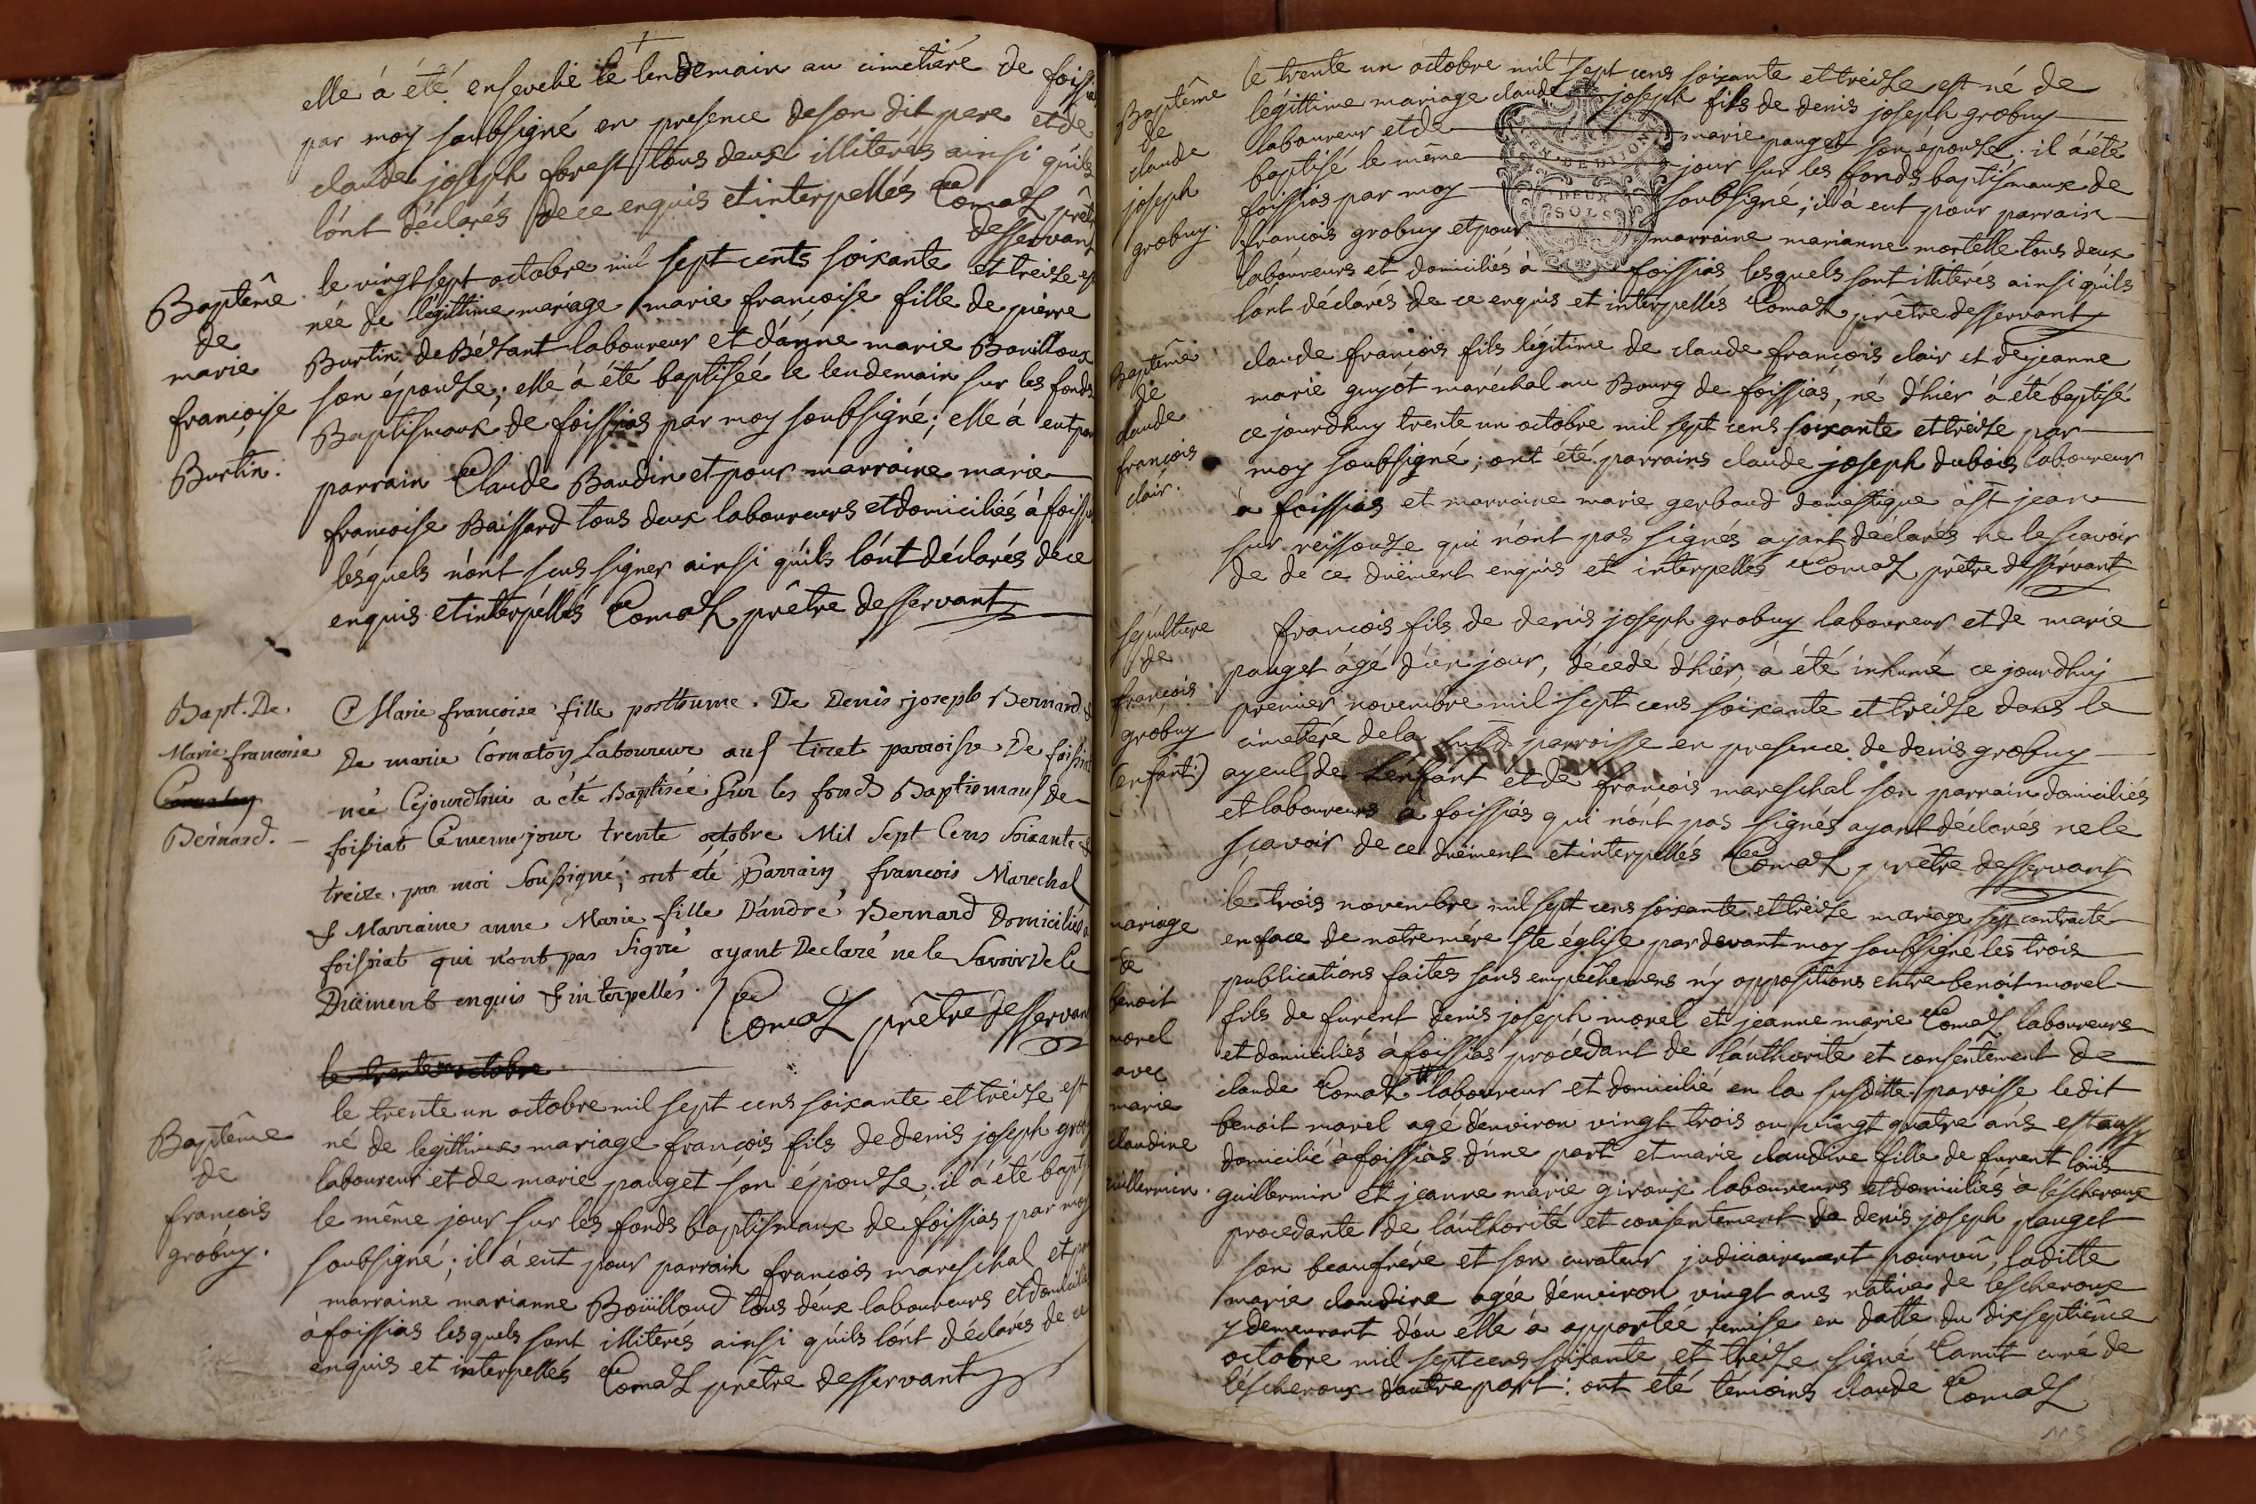 elle à été ensevelie le lendemain au cimetiére de foissi
par moy soubsigné en presence de son dit pere et de
claude joseph forest tous deux illiterés ainsi qu'ils
l'ont déclarés de ce enquis et interpellés Comas prêt
desservant
Baptême
de
marie
francoise
Burtin.
le vingt sept octobre mil sept cents soixante et treize est
née de légittime mariage marie francoise fille de pierre
Burtin de Bésant laboureur et d'anne marie Bouilloux
son épouse; elle à été baptisée le lendemain sur les fonds
Baptismaux de foissias par moy soubsigné; elle à eut pour
parrain Claude Baudin et pour marraine marie
francoise Baissard tous deux laboureurs et domiciliés à foissi
lesquels n'ont scus signer ainsi qu'ils l'ont déclarés de ce
enquis et interpellés Comas prêtre desservant
Bapt. De.
Marie francoise
Cornaton
Bernard.
Marie francoise fille posthume. De Denis joseph Bernard &
De marie Cornaton Laboureur aus tiret parroisse De foissiat
née Cejourdhui a été Baptisée Sur les fonds Baptismaus de
foissiat Ce meme jour trente octobre Mil Sept Cens Soixante &
treize. par moi Soussigné; ont été Parrain francois Marechal
& Marraine anne Marie fille D'andré Bernard Domiciliés a
foissiat qui n'ont pas Signé ayant Declaré ne le Savoir De Ce
Düement enquis & interpellés.
Comas prêtre desservan
le trente octobre
Baptême
de
francois
grobuy.
le trente un octobre mil sept cens soixante et treize est
né de legittime mariage françois fils de denis joseph gro
laboureur et de marie pauget son épouse. il à été bapti
le même jour sur les fonds baptismaux de foissias par moy
soubsigné; il à eut pour parrain francois mareschal et p
marraine marianne Boüilloud tous deux laboureurs et domicil
à foissias lesquels sont illiterés ainsi qu'ils l'ont déclarés de ce
enquis et interpellés Comas prêtre desservant
Baptême
de
claude
joseph
grobuy.
le trente un octobre mil sept cens soixante et treize est né de
légittime mariage claude joseph fils de denis joseph grobuy
laboureur et de marie pauget son épouse; il à été
baptisé le même jour sur les fonds baptismaux de
foissias par moy soubsigné; il à eut pour parrain
francois grobuy et pour marraine marianne mortelle tous deux
laboureurs et domiciliés à foissias lesquels sont illiteres ainsi qu'ils
l'ont déclarés de ce enquis et interpellés Comas prêtre desservant
DE DIJON
DEUX
SOLS
Baptême
de
claude
françois
clair.
claude francois fils légitime de claude françois clair et de jeanne
marie guyot maréchal au Bourg de foissias, né d'hier à été baptisé
ce jourdhuy trente un octobre mil sept cens soixante et treize par
moy soubsigné; ont été parrains claude joseph dubois laboureur
a foissias et marraine marie gerbaud domestique à st jean
sur reissouze qui n'ont pas signés ayant déclarés ne le scavoir
de de ce düement enquis et interpellés Comas prêtre desservant
sépulture
de
françois
grobuy
(enfant)
francois fils de denis joseph grobuy laboureur et de marie
pauget âgé d'un jour, décedé d'hier, a été inhumé ce jourdhuy
premier novembre mil sept cens soixante et treize dans le
cimetiére de la susd. parroisse en presence de denis grobuy
ayeul de l'enfant et de françois mareschal son parrain domiciliés
et laboureurs a foissias qui n'ont pas signés ayant déclarés ne le
scavoir de ce düement et interpellés Comas prêtre desservant
mariage
de
benoit
morel
avec
marie
claudine
guillermin.
le trois novembre mil sept cens soixante et treize mariage fut contracté
en face de notre mére ste église pardevant moy soussigné les trois
publications faites sans empêchemens n'y oppositions entre benoit morel
fils de furent denis joseph morel et jeanne marie Comas laboureurs
et domiciliés à foissias procédant de l'authorité et consentement de
claude Comas laboureur et domicilié en la susditte paroisse ledit
benoit morel agé d'environ vingt trois ou vingt quatre ans est aussy
domicilié à foissias d'une part et marie claudine fille de furent loüis
guillermin et jeanne marie giroux laboureurs et domiciliés à léscheroux
procedante de l'authorité et consentement de denis joseph pauget
son beaufrére et son curateur judiciairement pourvû, laditte
marie claudine agée d'environ vingt ans native de léscheroux
y demeurant d'ou elle à apportée remise en datte du dixseptième
octobre mil sept cens soixante et treize signé Canut curé de
léscheroux d'autre part: ont été témoins claude Comas